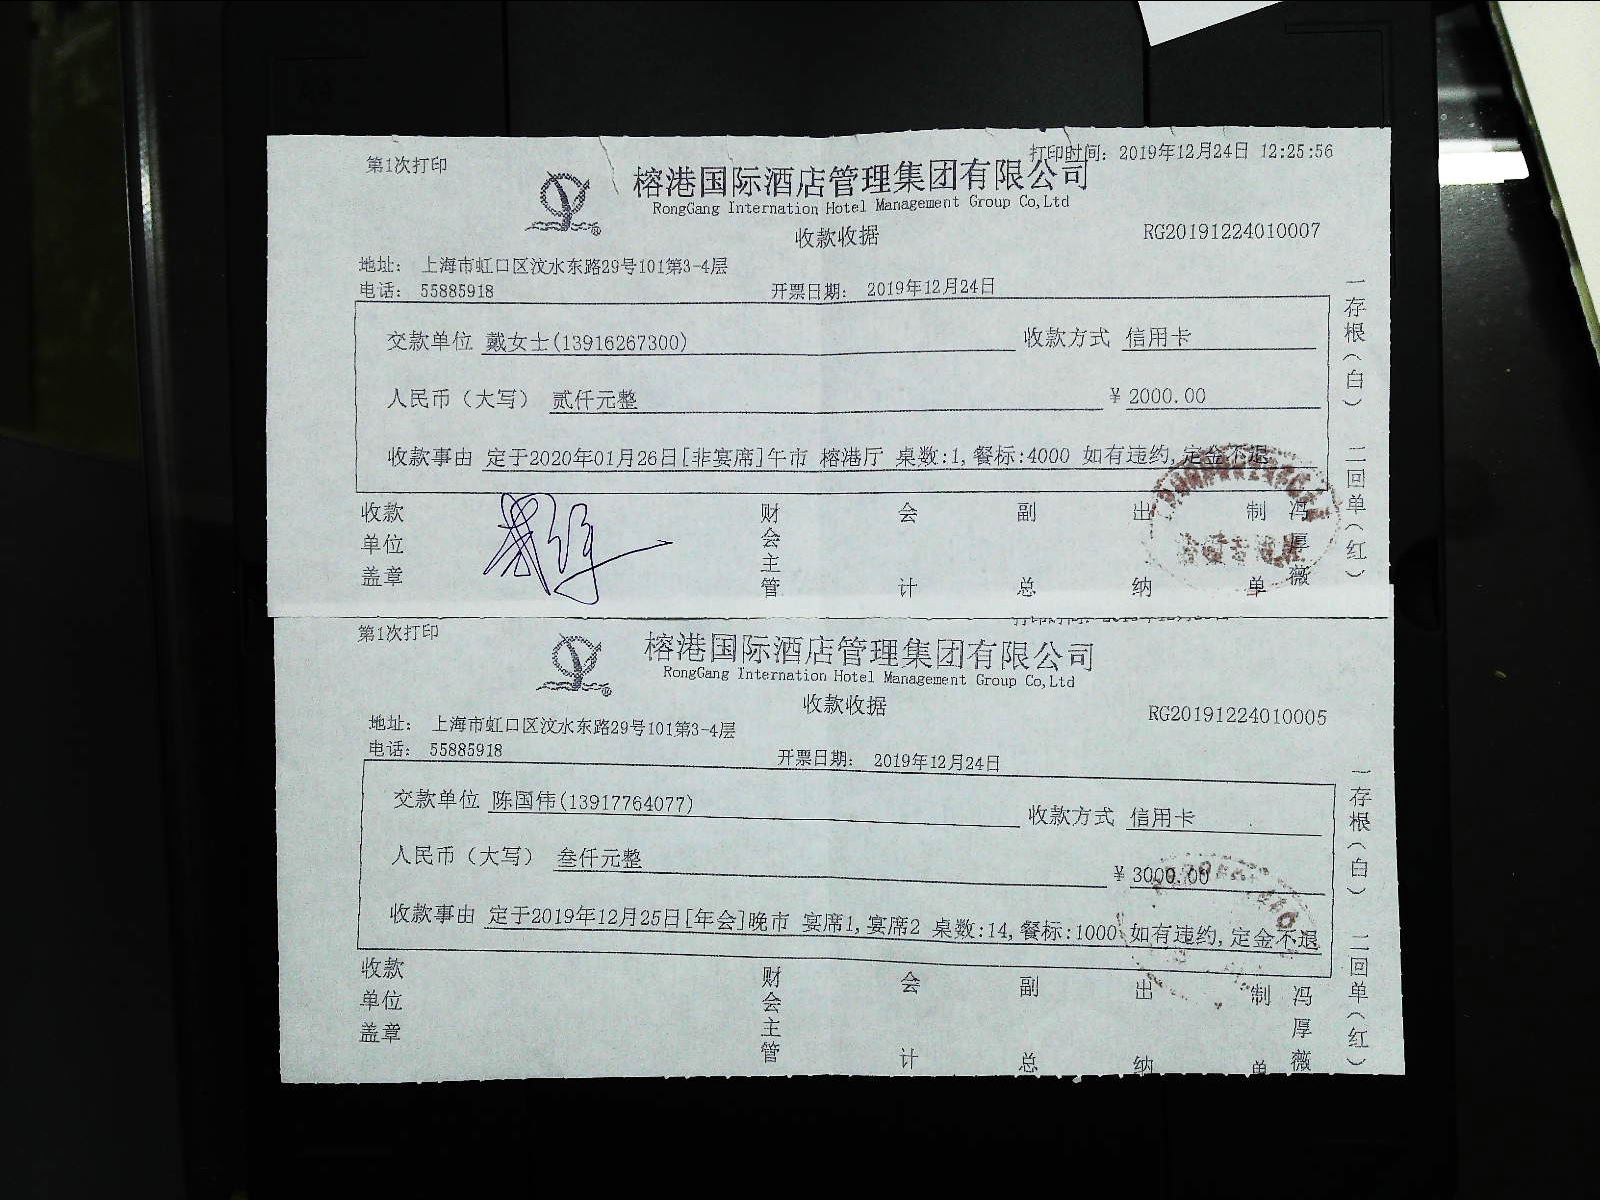 第1次打印
打印时间: 2019年12月24日 12:25:56
榕港国际酒店管理集团有限公司
RongGang Internation Hotel Management Group Co,Ltd
收款收据
RG20191224010007
地址: 上海市虹口区汶水东路29号101第3-4层
电话: 55885918
开票日期: 2019年12月24日
交款单位 戴女士(13916267300) 收款方式 信用卡
人民币（大写） 贰仟元整 ¥ 2000.00
收款事由 定于2020年01月26日[非宴席]午市 榕港厅 桌数:1,餐标:4000 如有违约,定金不退
收款单位盖章 财会主管 会计 副总 出纳 制单 冯厚薇
一存根(白) 二回单(红)
第1次打印
榕港国际酒店管理集团有限公司
RongGang Internation Hotel Management Group Co,Ltd
收款收据
RG20191224010005
地址: 上海市虹口区汶水东路29号101第3-4层
电话: 55885918
开票日期: 2019年12月24日
交款单位 陈国伟(13917764077) 收款方式 信用卡
人民币（大写） 叁仟元整 ¥ 3000.00
收款事由 定于2019年12月25日[年会]晚市 宴席1,宴席2 桌数:14,餐标:1000 如有违约,定金不退
收款单位盖章 财会主管 会计 副总 出纳 制单 冯厚薇
一存根(白) 二回单(红)